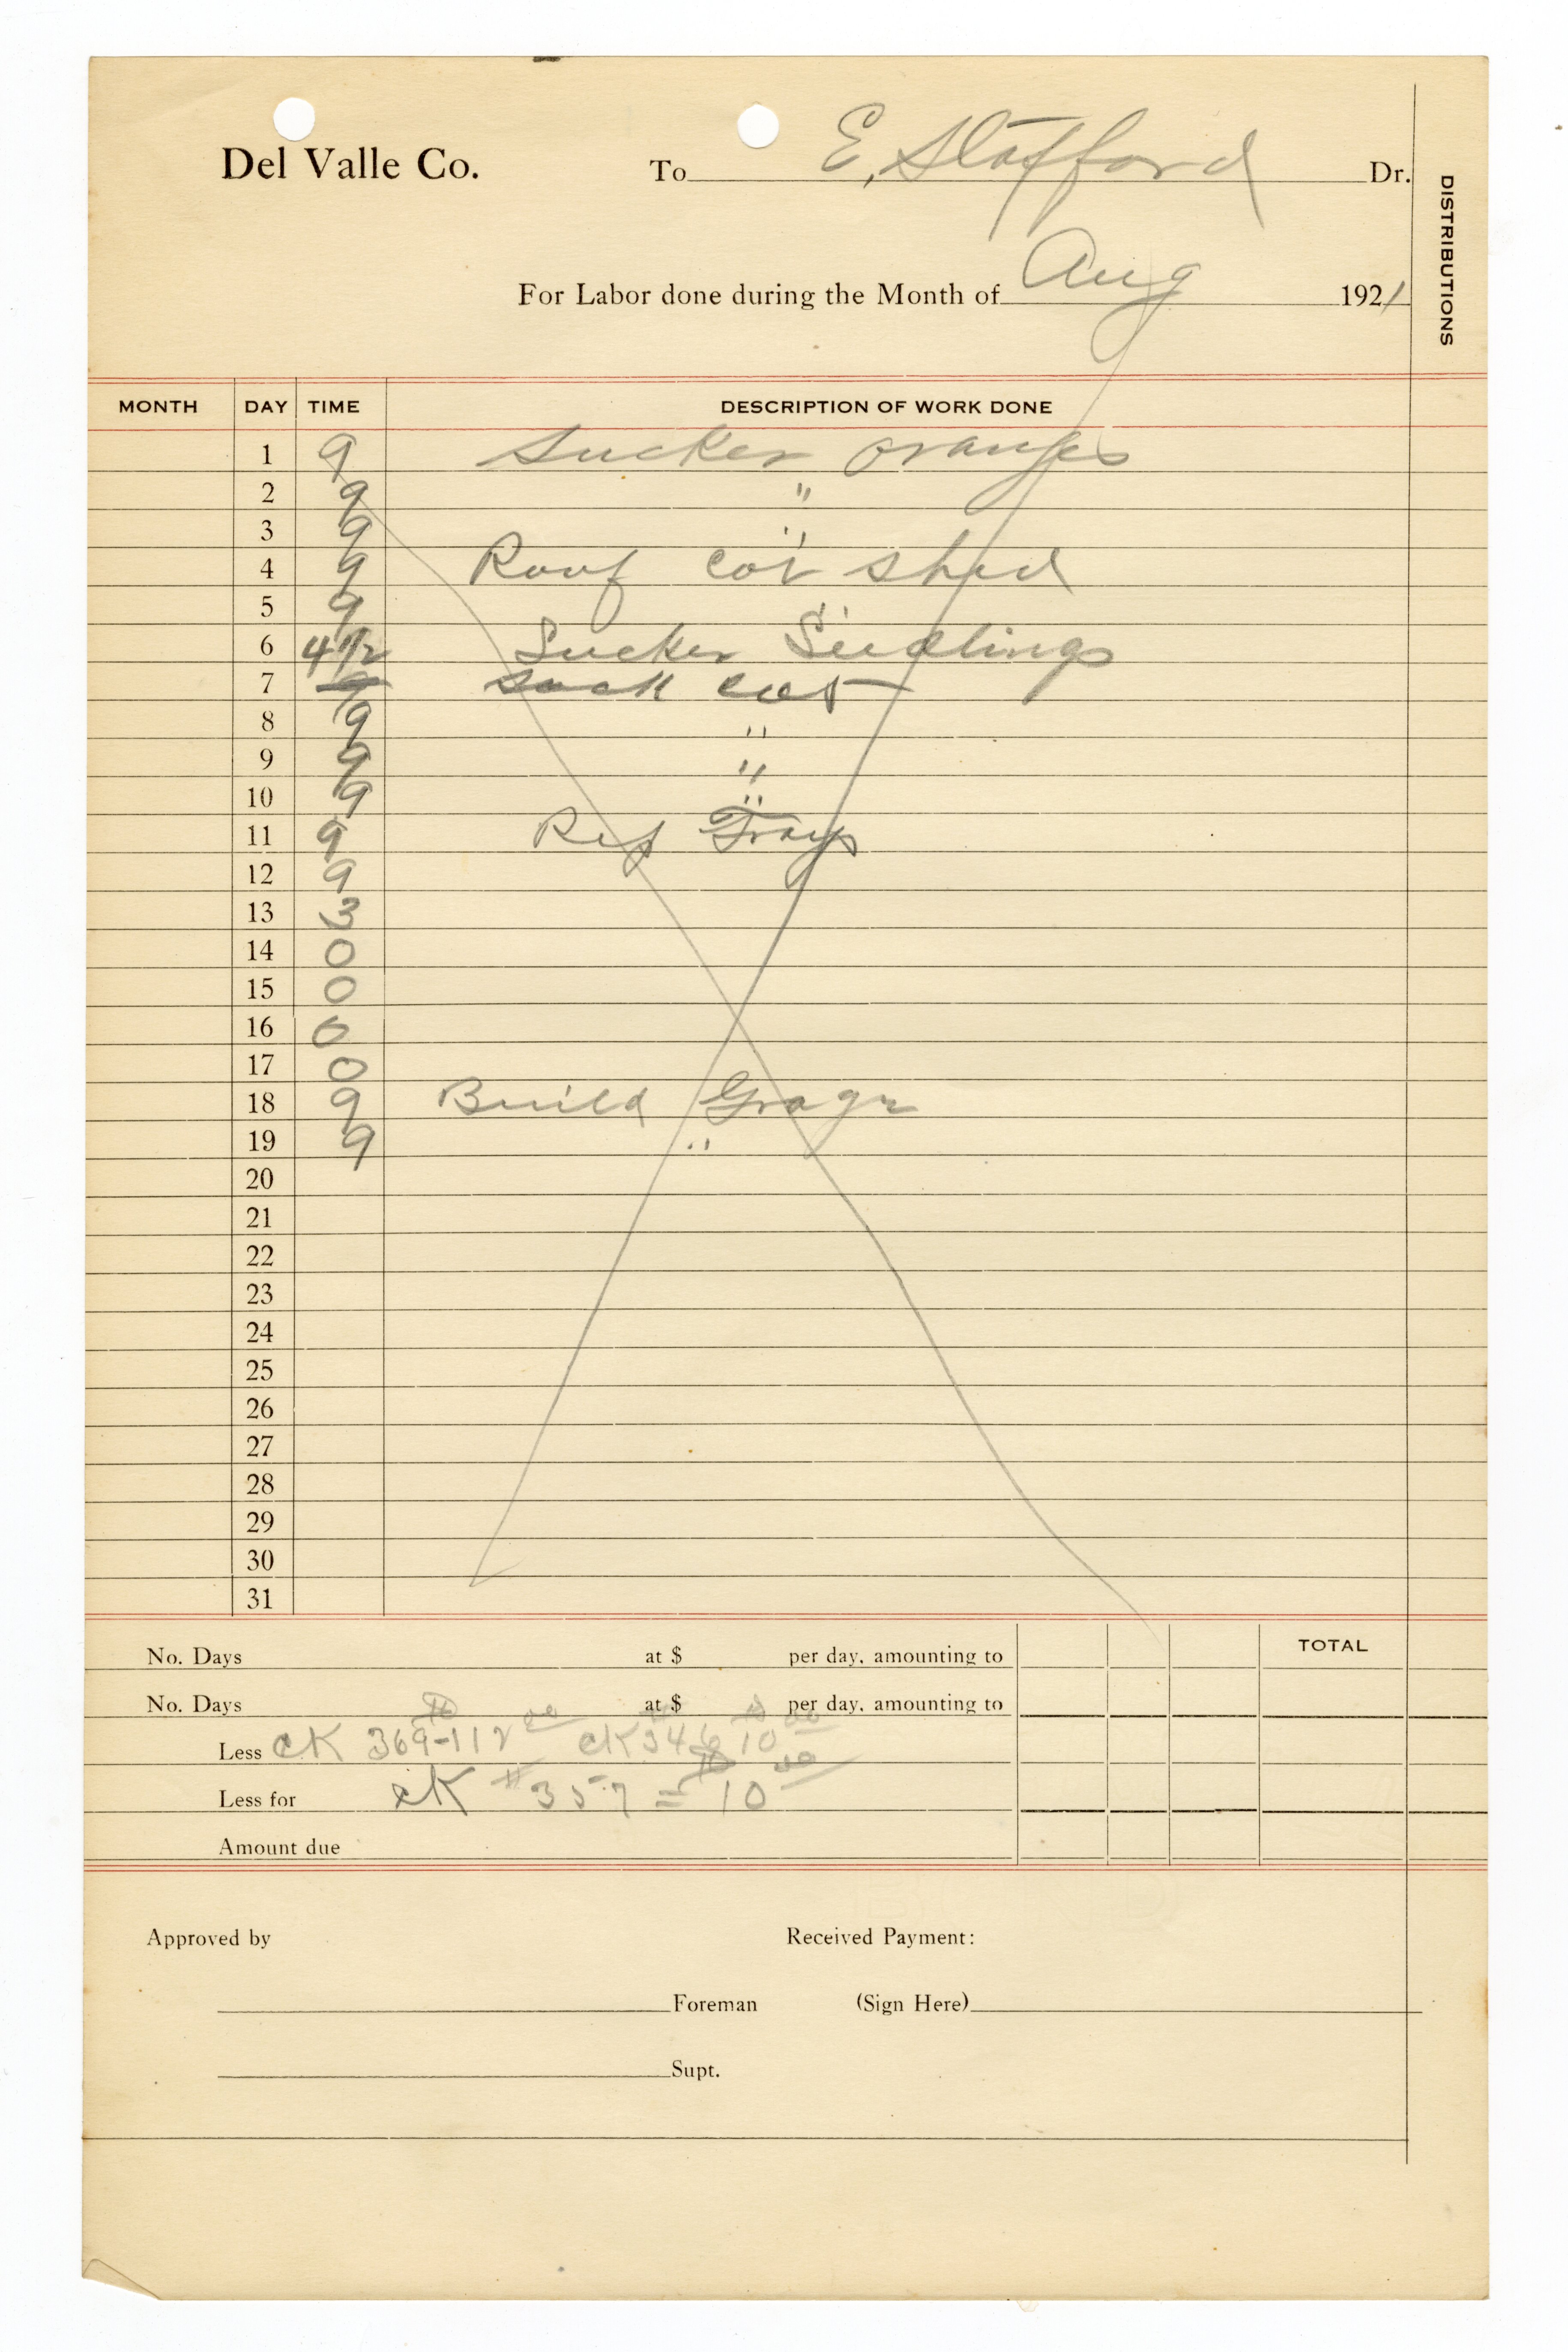 Del Valle Co. To E. Stafford Dr.
DISTRIBUTIONS
For Labor done during the Month of Aug 1921
MONTH DAY TIME DESCRIPTION OF WORK DONE
1 9 Sucker oranges
2 9 "
3 9 "
4 9 Roof cot shed
5 9 "
6 4 1/2 Sucker Seedlings
7 9 Sack cot
8 9 "
9 9 "
10 9 "
11 9 Rep Trays
12 9
13 3
14 0
15 0
16 0
17 0
18 9 Build Grage
19 9 "
20
21
22
23
24
25
26
27
28
29
30
31
No. Days at $ per day, amounting to TOTAL
No. Days at $ per day, amounting to
Less CK 369 - $112 00 CK # 346 $10 00
Less for CK # 357 = $10 00
Amount due
Approved by Received Payment:
Foreman (Sign Here)
Supt.